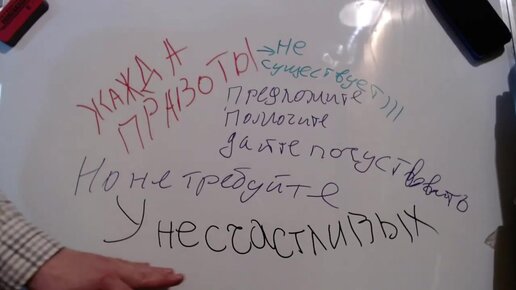 ЖАЖДА
ПРАВОТЫ
→ не
существует)))
Предложите
Помогите
дайте почувствовать
Но не требуйте
У несчастливых